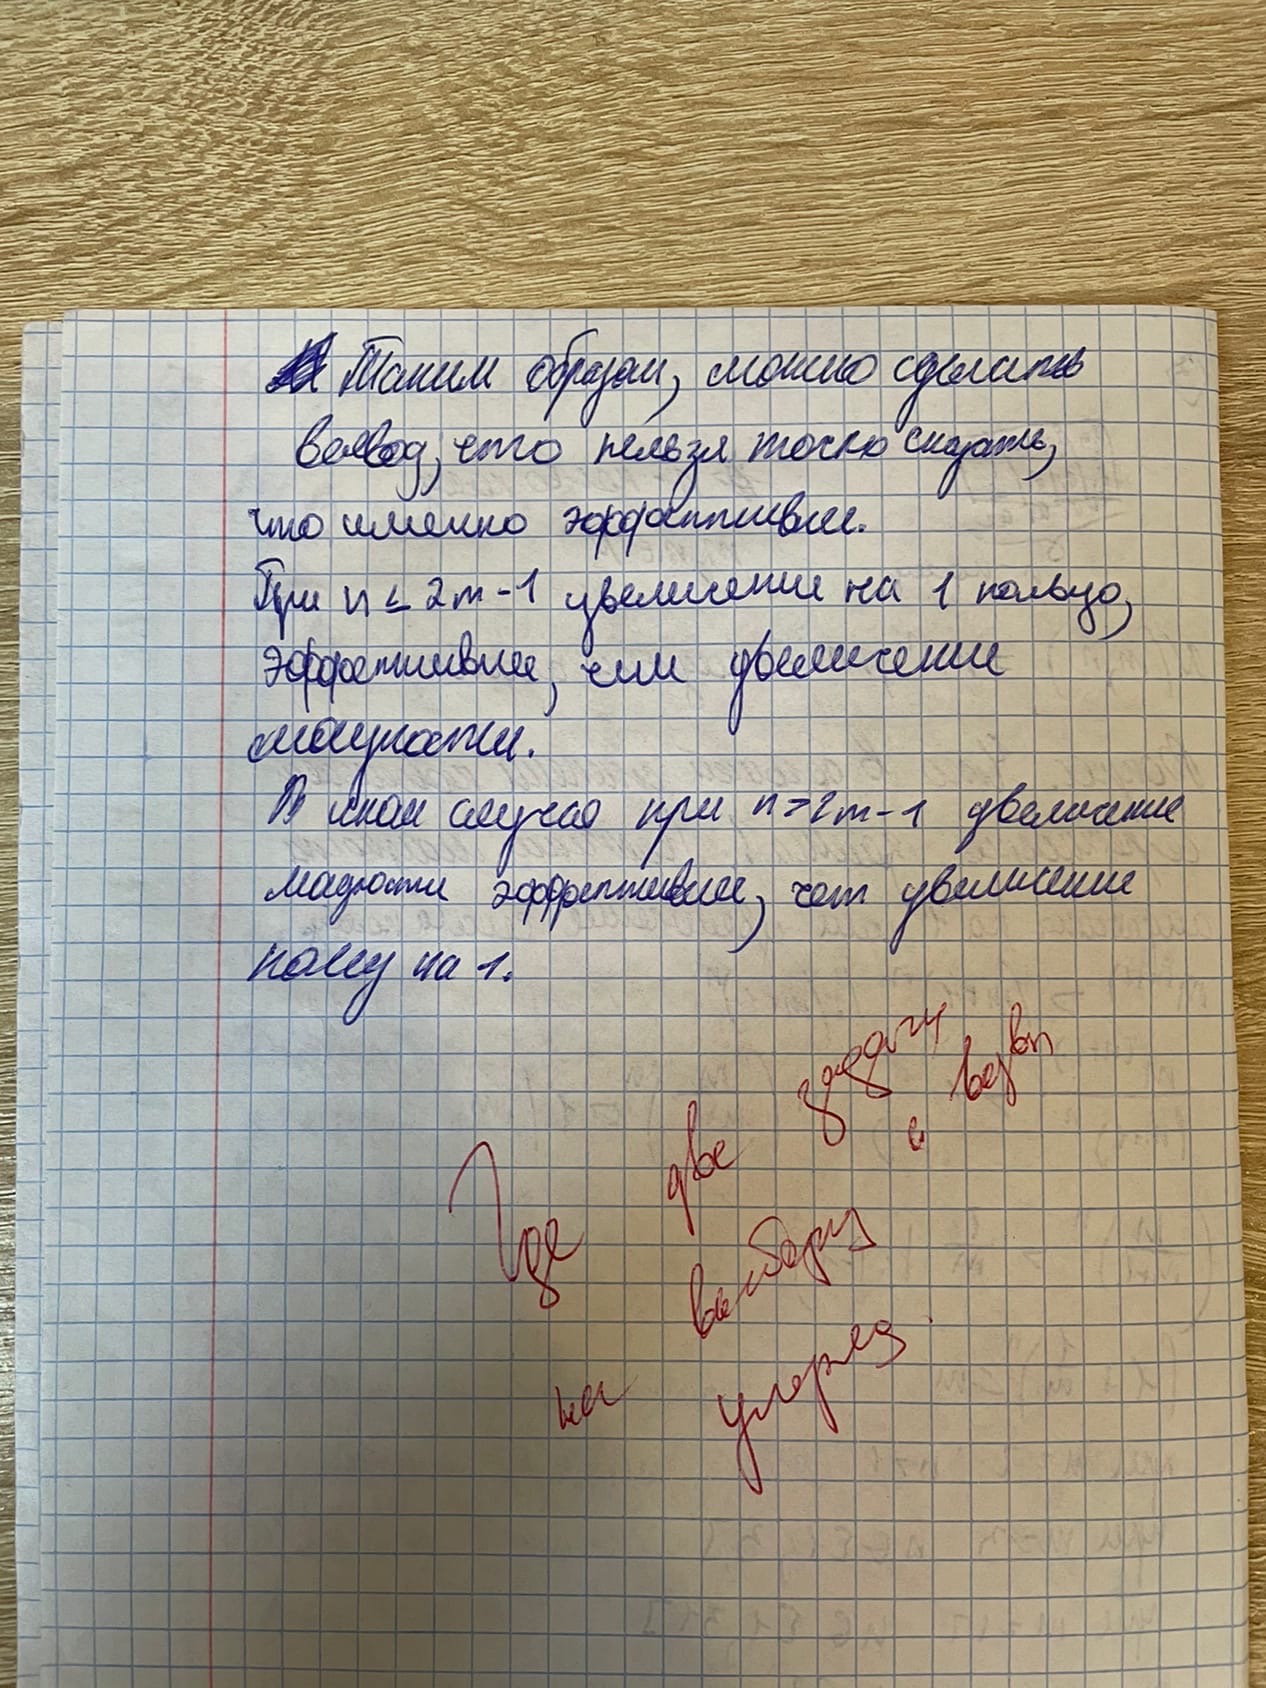 Таким образом, можно сделать
вывод, что нельзя точно сказать,
что именно эффективнее.
При n ≤ 2m - 1 увеличение на 1
эффективнее, чем увеличение
мощности.
В ином случае при n > 2m - 1 увеличение
мощности эффективнее, чем увеличение
на 1.
Где две задачи
и
на выбор